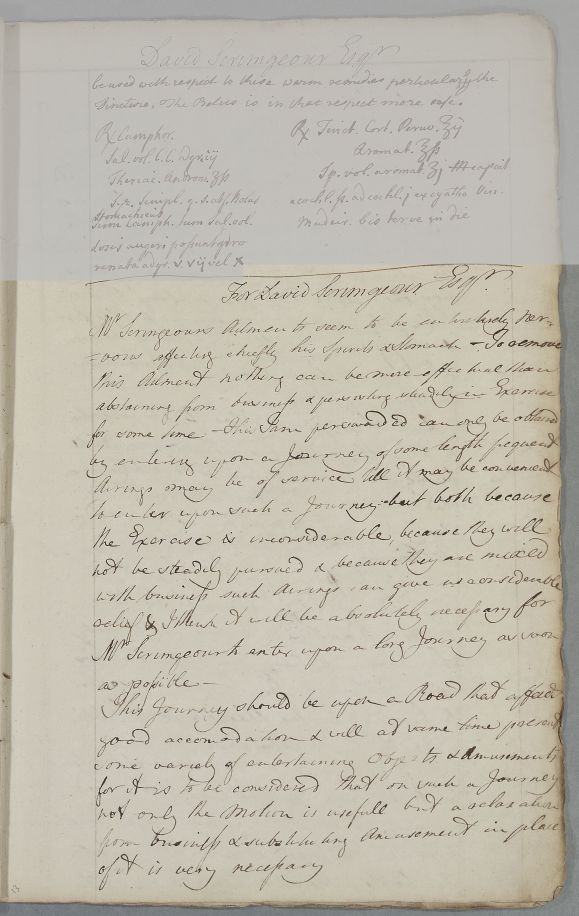 David Scrimgeour Esqr
be used with respect to these warm remedies particularly the
Tincture. The Bolus is in that respect more safe.
℞ Camphor.
Sal. vol. C.C. a gr. iij
Theriac. Androm. ʒß
Syr. simpl. q. s. Mf. Bolus
Stomachicus
sum Camph. tum sal. vol.
dosis augeri possunt pro
re nata ad gr. v. vij vel x
℞ Tinct. Cort. Peruv. ℥ij
Aromat. ℥ß
Sp. vol. aromat. ʒj M capiat
cochl. ß. ad cochl. j ex cyatho Vin.
Madeir. bis terve in die
For David Scrimgeour Esqr.
Mr Scrimgeours Ailments seem to be entirely ner-
-vous affecting chiefly his Spirits & Stomach - To remove
this Ailment nothing can be more effectual than
abstaining from business & persisting steadily in Exercise
for some time - this I am perswaded can only be obtained
by entering upon a Journey of some length frequent
Airings may be of service till it may be convenient
to enter upon such a Journey but both because
the Exercise is inconsiderable, because they will
not be steadily pursued & because they are mixed
with business such Airings can give no considerable
relief & I think it will be absolutely necessary for
Mr Scrimgeour to enter upon a long Journey as soon
as possible -
This Journey should be upon a Road that affords
good accomodation & will at same time present
some variety of entertaining Objects & Amusements
for it is to be considered that on such a Journey
not only the Motion is usefull but a relaxation
from business & substituting Amusement in place
of it is very necessary